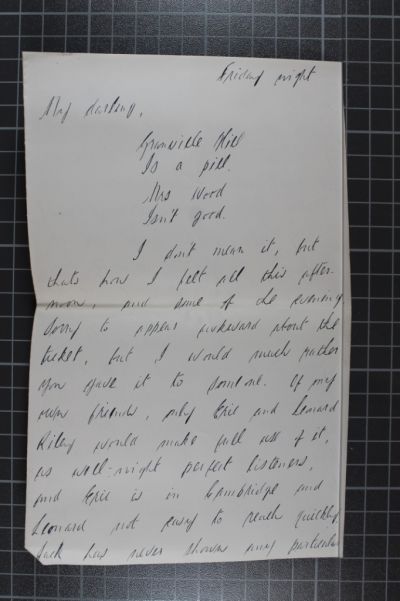 Friday night
My darling,
Granville Hill
Is a pill.
Mrs Wood
Isn't good.
I don't mean it, but
thats how I felt all this after-
noon, and some of the evening
Sorry to appear awkward about the
ticket, but I would much rather
you gave it to someone. Of my
own friends, only Eric and Leonard
Riley would make full use of it,
as well-nigh perfect listeners,
and Eric is in Cambridge and
Leonard not easy to reach quickly
Jack has never shown any particular